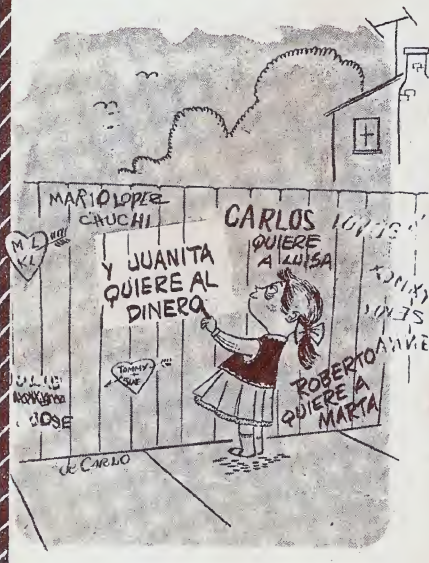 MARIO LOPEZ
CAUCHI
M L
K L
CARLOS
QUIERE
A LUISA
Y JUANITA
QUIERE AL
DINERO
TOMMY
SUE
JULIO
JOSE
ROBERTO
QUIERE A
MARTA
de CARLO